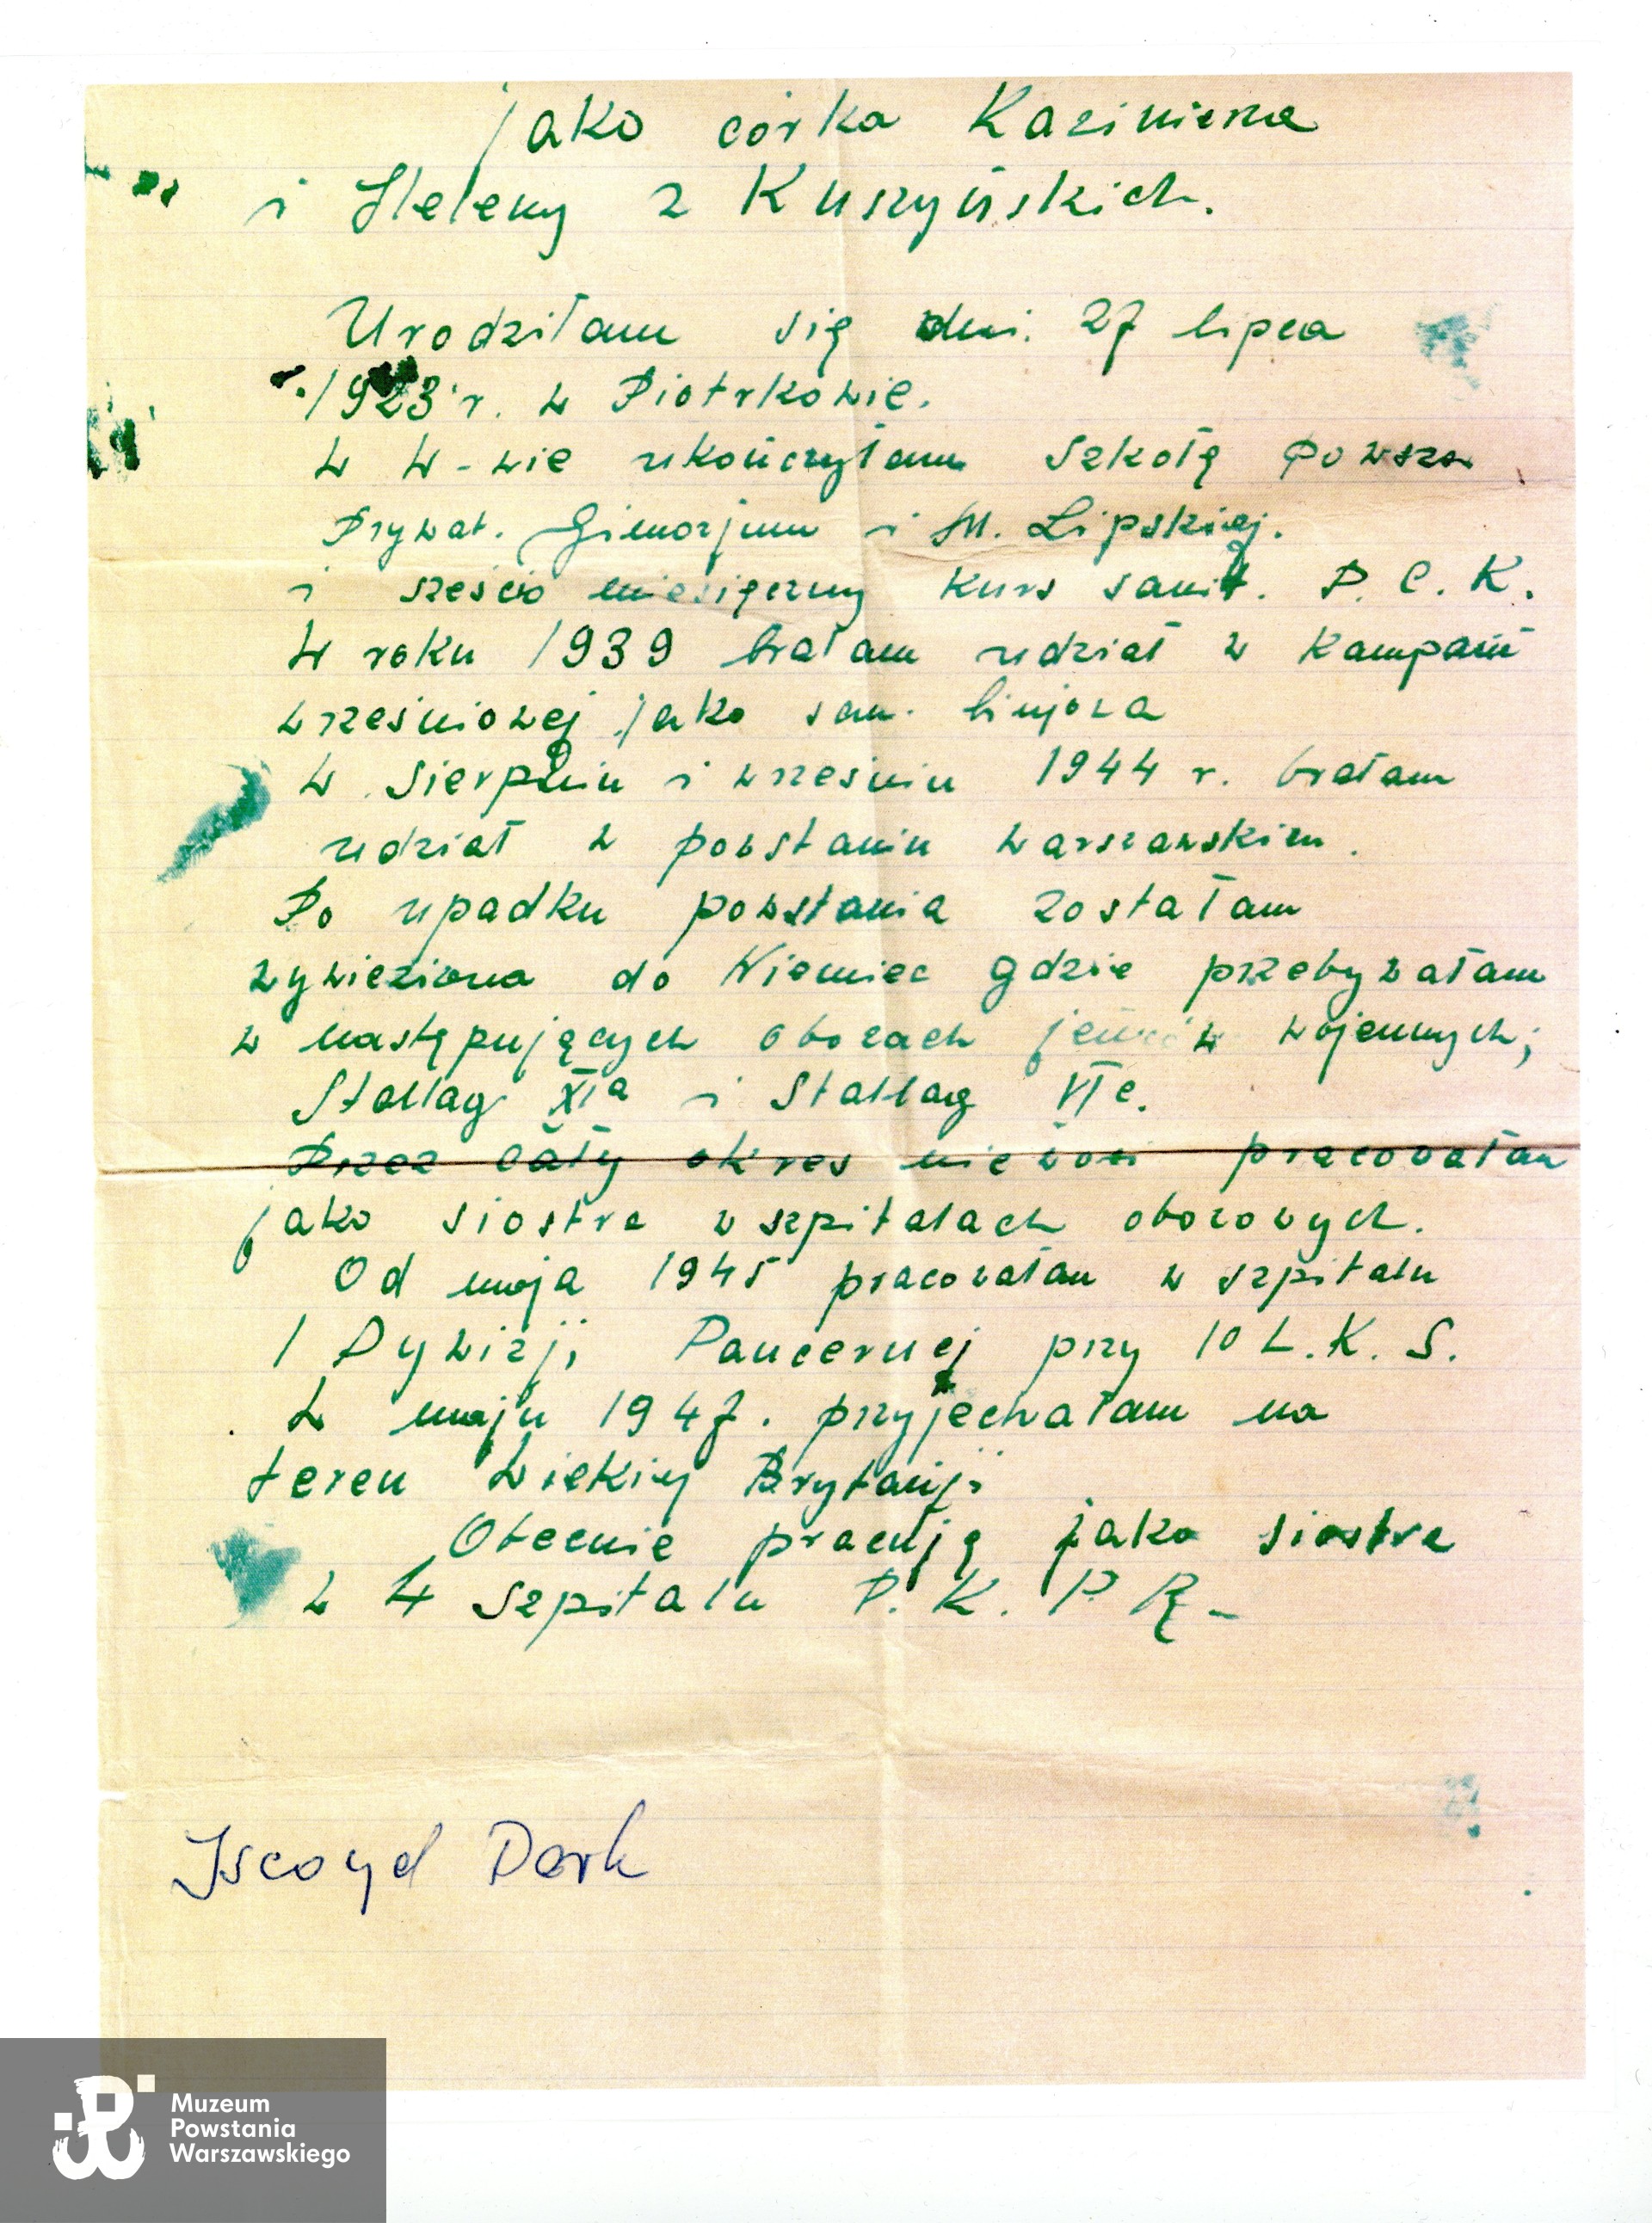 jako córka Kazimierza
i Heleny z Kuszyńskich.
Urodziłam się dni. 27 lipca
1923 r. w Piotrkowie.
W W-wie ukończyłam Szkołę Powsze
Prywat. Gimnazjum i M. Lipskiej.
i sześcio miesięczny kurs sanit. P. C. K.
W roku 1939 brałam udział w Kampanii
wrześniowej jako san. linjowa
W Sierpniu i wrześniu 1944 r. brałam
udział w powstaniu warszawskim.
Po upadku powstania zostałam
wywieziona do Niemiec gdzie przebywałam
w następujących obozach jeńców wojennych;
Stallag XIa i Stallag VIc.
Przez cały okres niewoli pracowałam
jako siostra w szpitalach obozowych.
Od maja 1945 pracowałam w szpitalu
1 Dywizji Pancernej przy 10 L. K. S.
W maju 1947. przyjechałam na
teren Wielkiej Brytanji
Obecnie pracuję jako siostra
w 4 Szpitalu P. K. P. R.
Iscoyd Park
Muzeum
Powstania
Warszawskiego